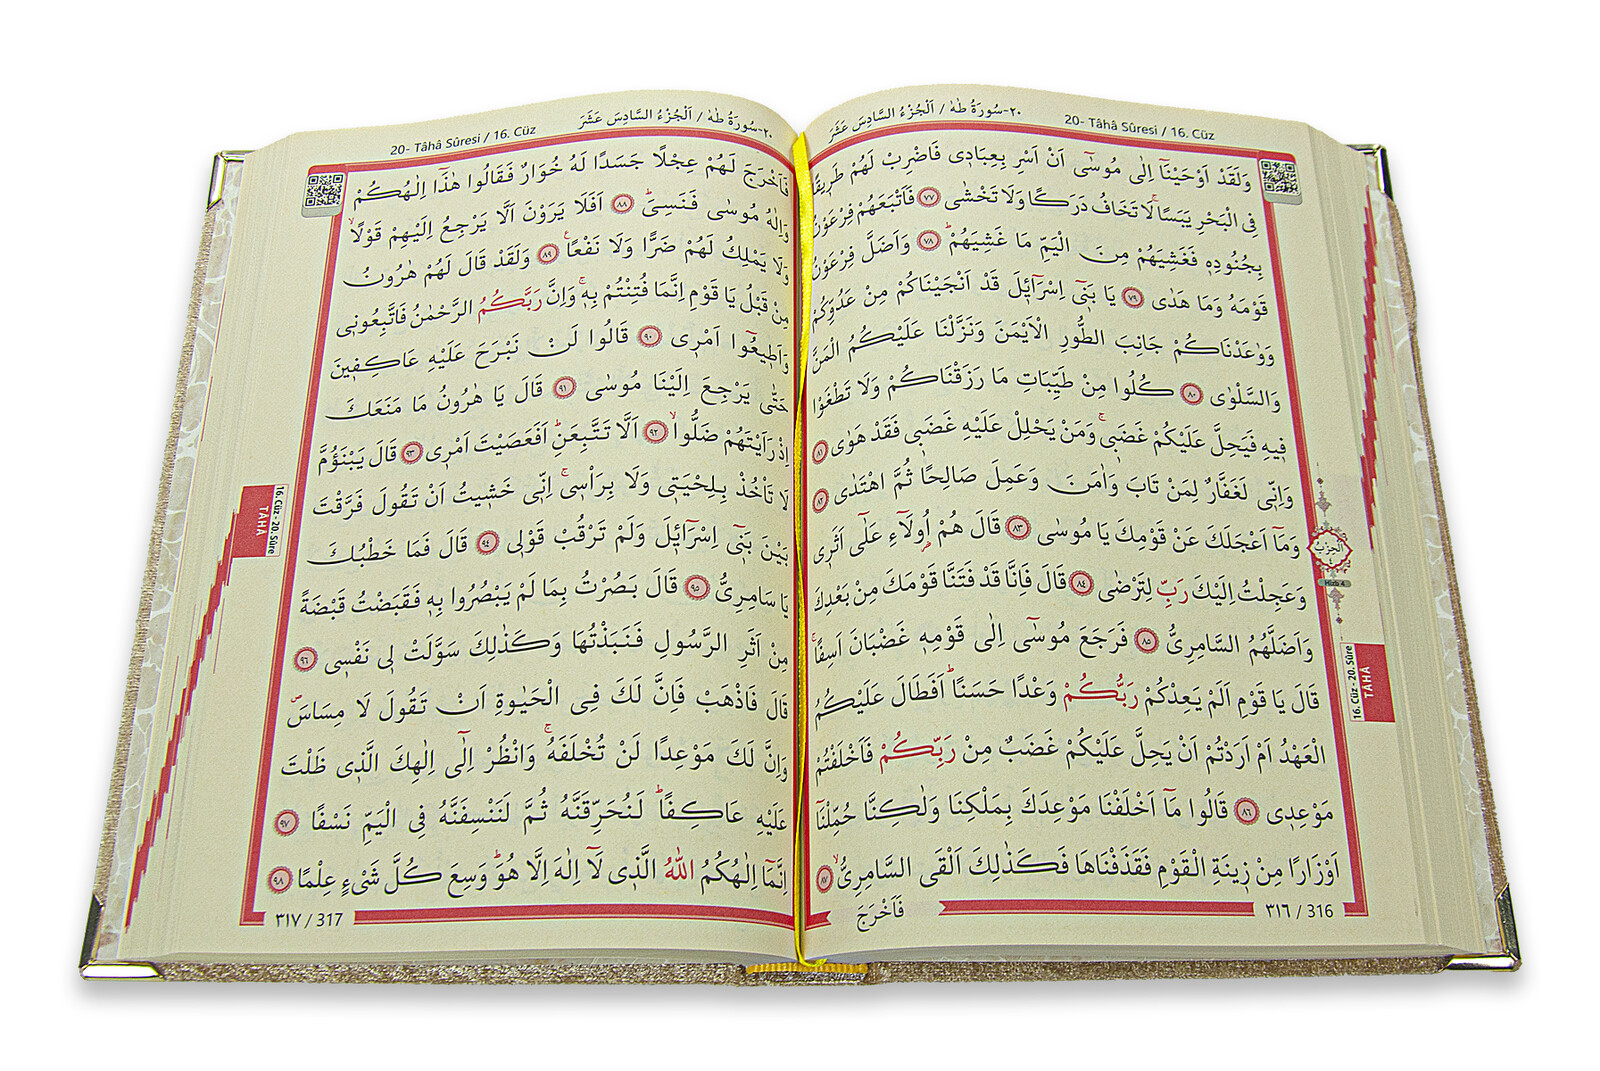 ٢٠-سُورَةُ طٰهٰ / اَلْجُزْءُ السَّادِسَ عَشَرَ
20- Tâhâ Sûresi / 16. Cüz
وَلَقَدْ اَوْحَيْنَٓا اِلٰى مُوسٰٓى اَنْ اَسْرِ بِعِبَادٖى فَاضْرِبْ لَهُمْ طَرٖيقًا
فِى الْبَحْرِ يَبَسًاۙ لَا تَخَافُ دَرَكًا وَلَا تَخْشٰى ٧٧ فَاَتْبَعَهُمْ فِرْعَوْنُ
بِجُنُودِهٖ فَغَشِيَهُمْ مِنَ الْيَمِّ مَا غَشِيَهُمْؕ ٧٨ وَاَضَلَّ فِرْعَوْنُ
قَوْمَهُ وَمَا هَدٰى ٧٩ يَا بَنٖٓى اِسْرَٓائٖلَ قَدْ اَنْجَيْنَاكُمْ مِنْ عَدُوِّكُمْ
وَوٰعَدْنَاكُمْ جَانِبَ الطُّورِ الْاَيْمَنَ وَنَزَّلْنَا عَلَيْكُمُ الْمَنَّ
وَالسَّلْوٰى ٨٠ كُلُوا مِنْ طَيِّبَاتِ مَا رَزَقْنَاكُمْ وَلَا تَطْغَوْا
فٖيهِ فَيَحِلَّ عَلَيْكُمْ غَضَبٖىۚ وَمَنْ يَحْلِلْ عَلَيْهِ غَضَبٖى فَقَدْ هَوٰى ٨١
وَاِنّٖى لَغَفَّارٌ لِمَنْ تَابَ وَاٰمَنَ وَعَمِلَ صَالِحًا ثُمَّ اهْتَدٰى ٨٢
وَمَٓا اَعْجَلَكَ عَنْ قَوْمِكَ يَا مُوسٰى ٨٣ قَالَ هُمْ اُو۬لَٓاءِ عَلٰٓى اَثَرٖى
وَعَجِلْتُ اِلَيْكَ رَبِّ لِتَرْضٰى ٨٤ قَالَ فَاِنَّا قَدْ فَتَنَّا قَوْمَكَ مِنْ بَعْدِكَ
وَاَضَلَّهُمُ السَّامِرِىُّ ٨٥ فَرَجَعَ مُوسٰٓى اِلٰى قَوْمِهٖ غَضْبَانَ اَسِفًاۚ
قَالَ يَا قَوْمِ اَلَمْ يَعِدْكُمْ رَبُّكُمْ وَعْدًا حَسَنًاؕ اَفَطَالَ عَلَيْكُمُ
الْعَهْدُ اَمْ اَرَدْتُمْ اَنْ يَحِلَّ عَلَيْكُمْ غَضَبٌ مِنْ رَبِّكُمْ فَاَخْلَفْتُمْ
مَوْعِدٖى ٨٦ قَالُوا مَٓا اَخْلَفْنَا مَوْعِدَكَ بِمَلْكِنَا وَلٰكِنَّا حُمِّلْنَٓا
اَوْزَارًا مِنْ زٖينَةِ الْقَوْمِ فَقَذَفْنَاهَا فَكَذٰلِكَ اَلْقَى السَّامِرِىُّۙ ٨٧
فَاَخْرَجَ
٣١٦ / 316
اَلْحِزْبُ
Hizb 4
16. Cüz - 20. Sûre
TÂHÂ
٢٠-سُورَةُ طٰهٰ / اَلْجُزْءُ السَّادِسَ عَشَرَ
20- Tâhâ Sûresi / 16. Cüz
فَاَخْرَجَ لَهُمْ عِجْلًا جَسَدًا لَهُ خُوَارٌ فَقَالُوا هٰذَٓا اِلٰهُكُمْ
وَاِلٰهُ مُوسٰى فَنَسِىَؕ ٨٨ اَفَلَا يَرَوْنَ اَلَّا يَرْجِعُ اِلَيْهِمْ قَوْلًاۙ
وَلَا يَمْلِكُ لَهُمْ ضَرًّا وَلَا نَفْعًاۚ ٨٩ وَلَقَدْ قَالَ لَهُمْ هٰرُونُ
مِنْ قَبْلُ يَا قَوْمِ اِنَّمَا فُتِنْتُمْ بِهٖۚ وَاِنَّ رَبَّكُمُ الرَّحْمٰنُ فَاتَّبِعُونٖى
وَاَطٖيعُٓوا اَمْرٖى ٩٠ قَالُوا لَنْ نَبْرَحَ عَلَيْهِ عَاكِفٖينَ
حَتّٰى يَرْجِعَ اِلَيْنَا مُوسٰى ٩١ قَالَ يَا هٰرُونُ مَا مَنَعَكَ
اِذْ رَاَيْتَهُمْ ضَلُّواۙ ٩٢ اَلَّا تَتَّبِعَنِؕ اَفَعَصَيْتَ اَمْرٖى ٩٣ قَالَ يَبْنَؤُمَّ
لَا تَاْخُذْ بِلِحْيَتٖى وَلَا بِرَاْسٖىۚ اِنّٖى خَشٖيتُ اَنْ تَقُولَ فَرَّقْتَ
بَيْنَ بَنٖٓى اِسْرَٓائٖلَ وَلَمْ تَرْقُبْ قَوْلٖى ٩٤ قَالَ فَمَا خَطْبُكَ
يَا سَامِرِىُّ ٩٥ قَالَ بَصُرْتُ بِمَا لَمْ يَبْصُرُوا بِهٖ فَقَبَضْتُ قَبْضَةً
مِنْ اَثَرِ الرَّسُولِ فَنَبَذْتُهَا وَكَذٰلِكَ سَوَّلَتْ لٖى نَفْسٖى ٩٦
قَالَ فَاذْهَبْ فَاِنَّ لَكَ فِى الْحَيٰوةِ اَنْ تَقُولَ لَا مِسَاسَࣕ
وَاِنَّ لَكَ مَوْعِدًا لَنْ تُخْلَفَهُۚ وَانْظُرْ اِلٰٓى اِلٰهِكَ الَّذٖى ظَلْتَ
عَلَيْهِ عَاكِفًاؕ لَنُحَرِّقَنَّهُ ثُمَّ لَنَنْسِفَنَّهُ فِى الْيَمِّ نَسْفًا ٩٧
اِنَّمَٓا اِلٰهُكُمُ اللّٰهُ الَّذٖى لَٓا اِلٰهَ اِلَّا هُوَؕ وَسِعَ كُلَّ شَىْءٍ عِلْمًا ٩٨
٣١٧ / 317
16. Cüz - 20. Sûre
TÂHÂ